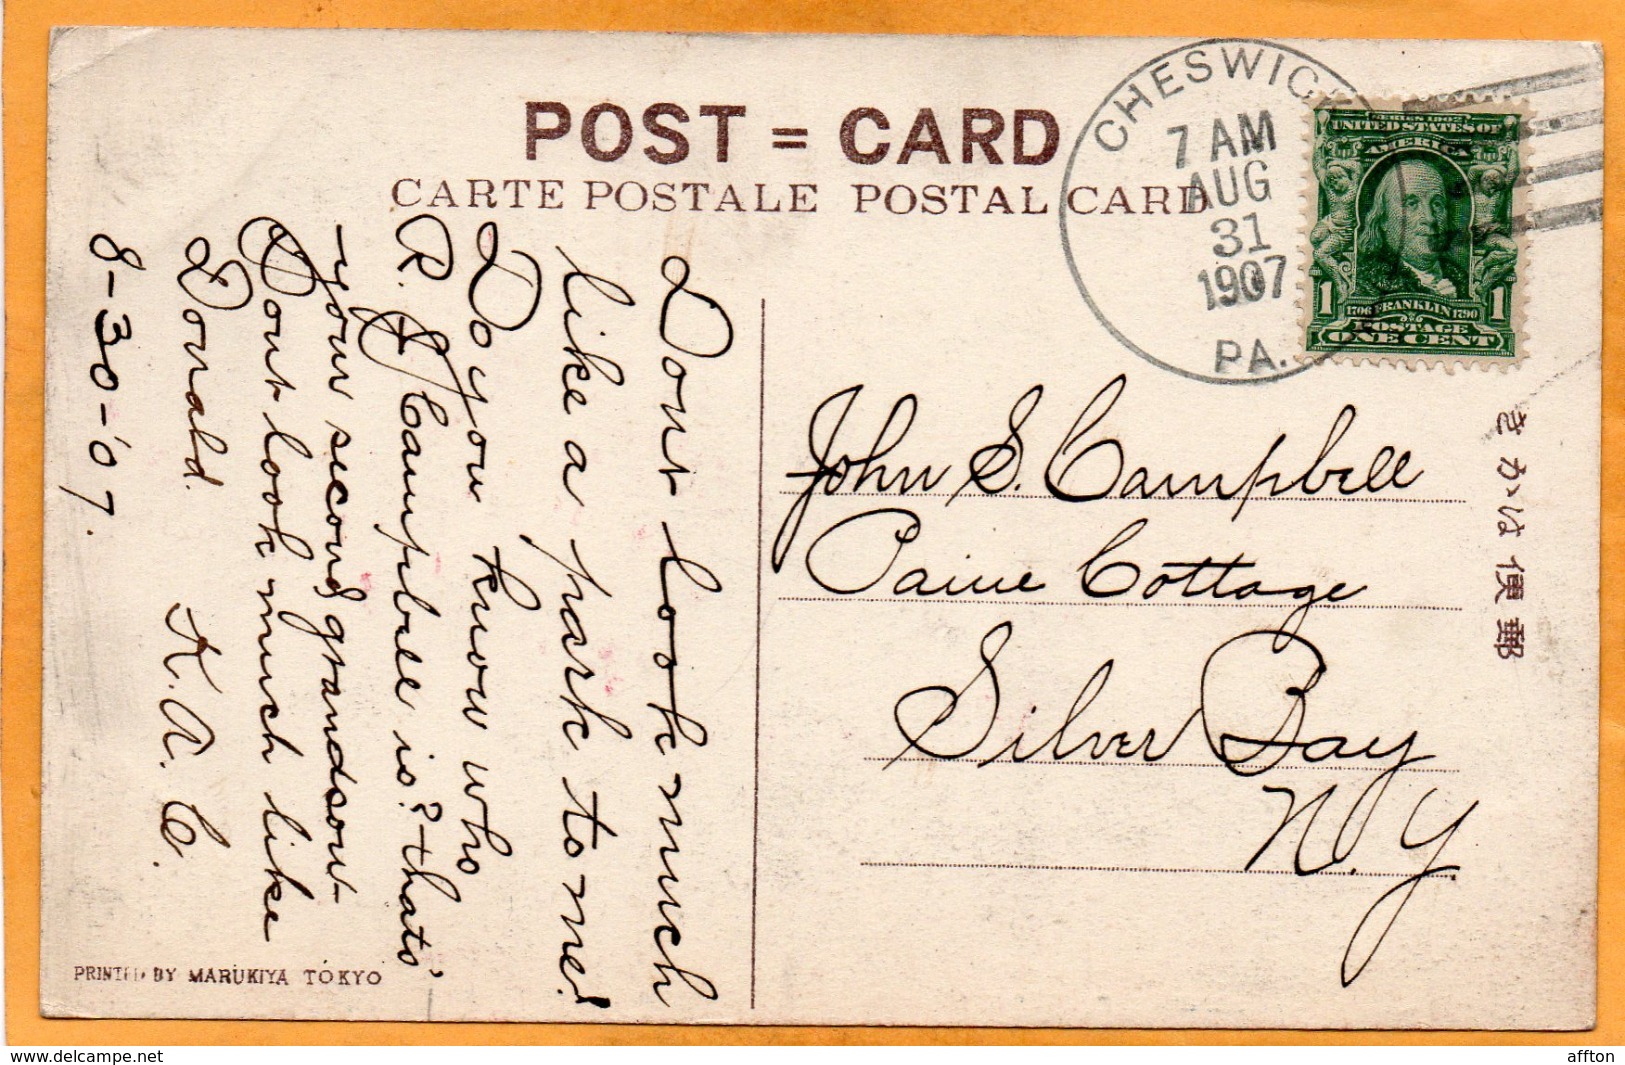 POST = CARD
CARTE POSTALE POSTAL CARD
CHESWICK
7 AM
AUG
31
1907
PA.
SERIES 1902
UNITED STATES OF
AMERICA
1 1706 FRANKLIN 1790 1
POSTAGE
ONE CENT
Dont look much
like a park to me!
Do you know who
R. J. Campbell is? thats'
your second grandson-
Dont look much like
Donald. K. A. C.
8-30-'07.
John S. Campbell
Paine Cottage
Silver Bay
N.Y.
きかは便郵
PRINTED BY MARUKIYA TOKYO
www.delcampe.net
affton